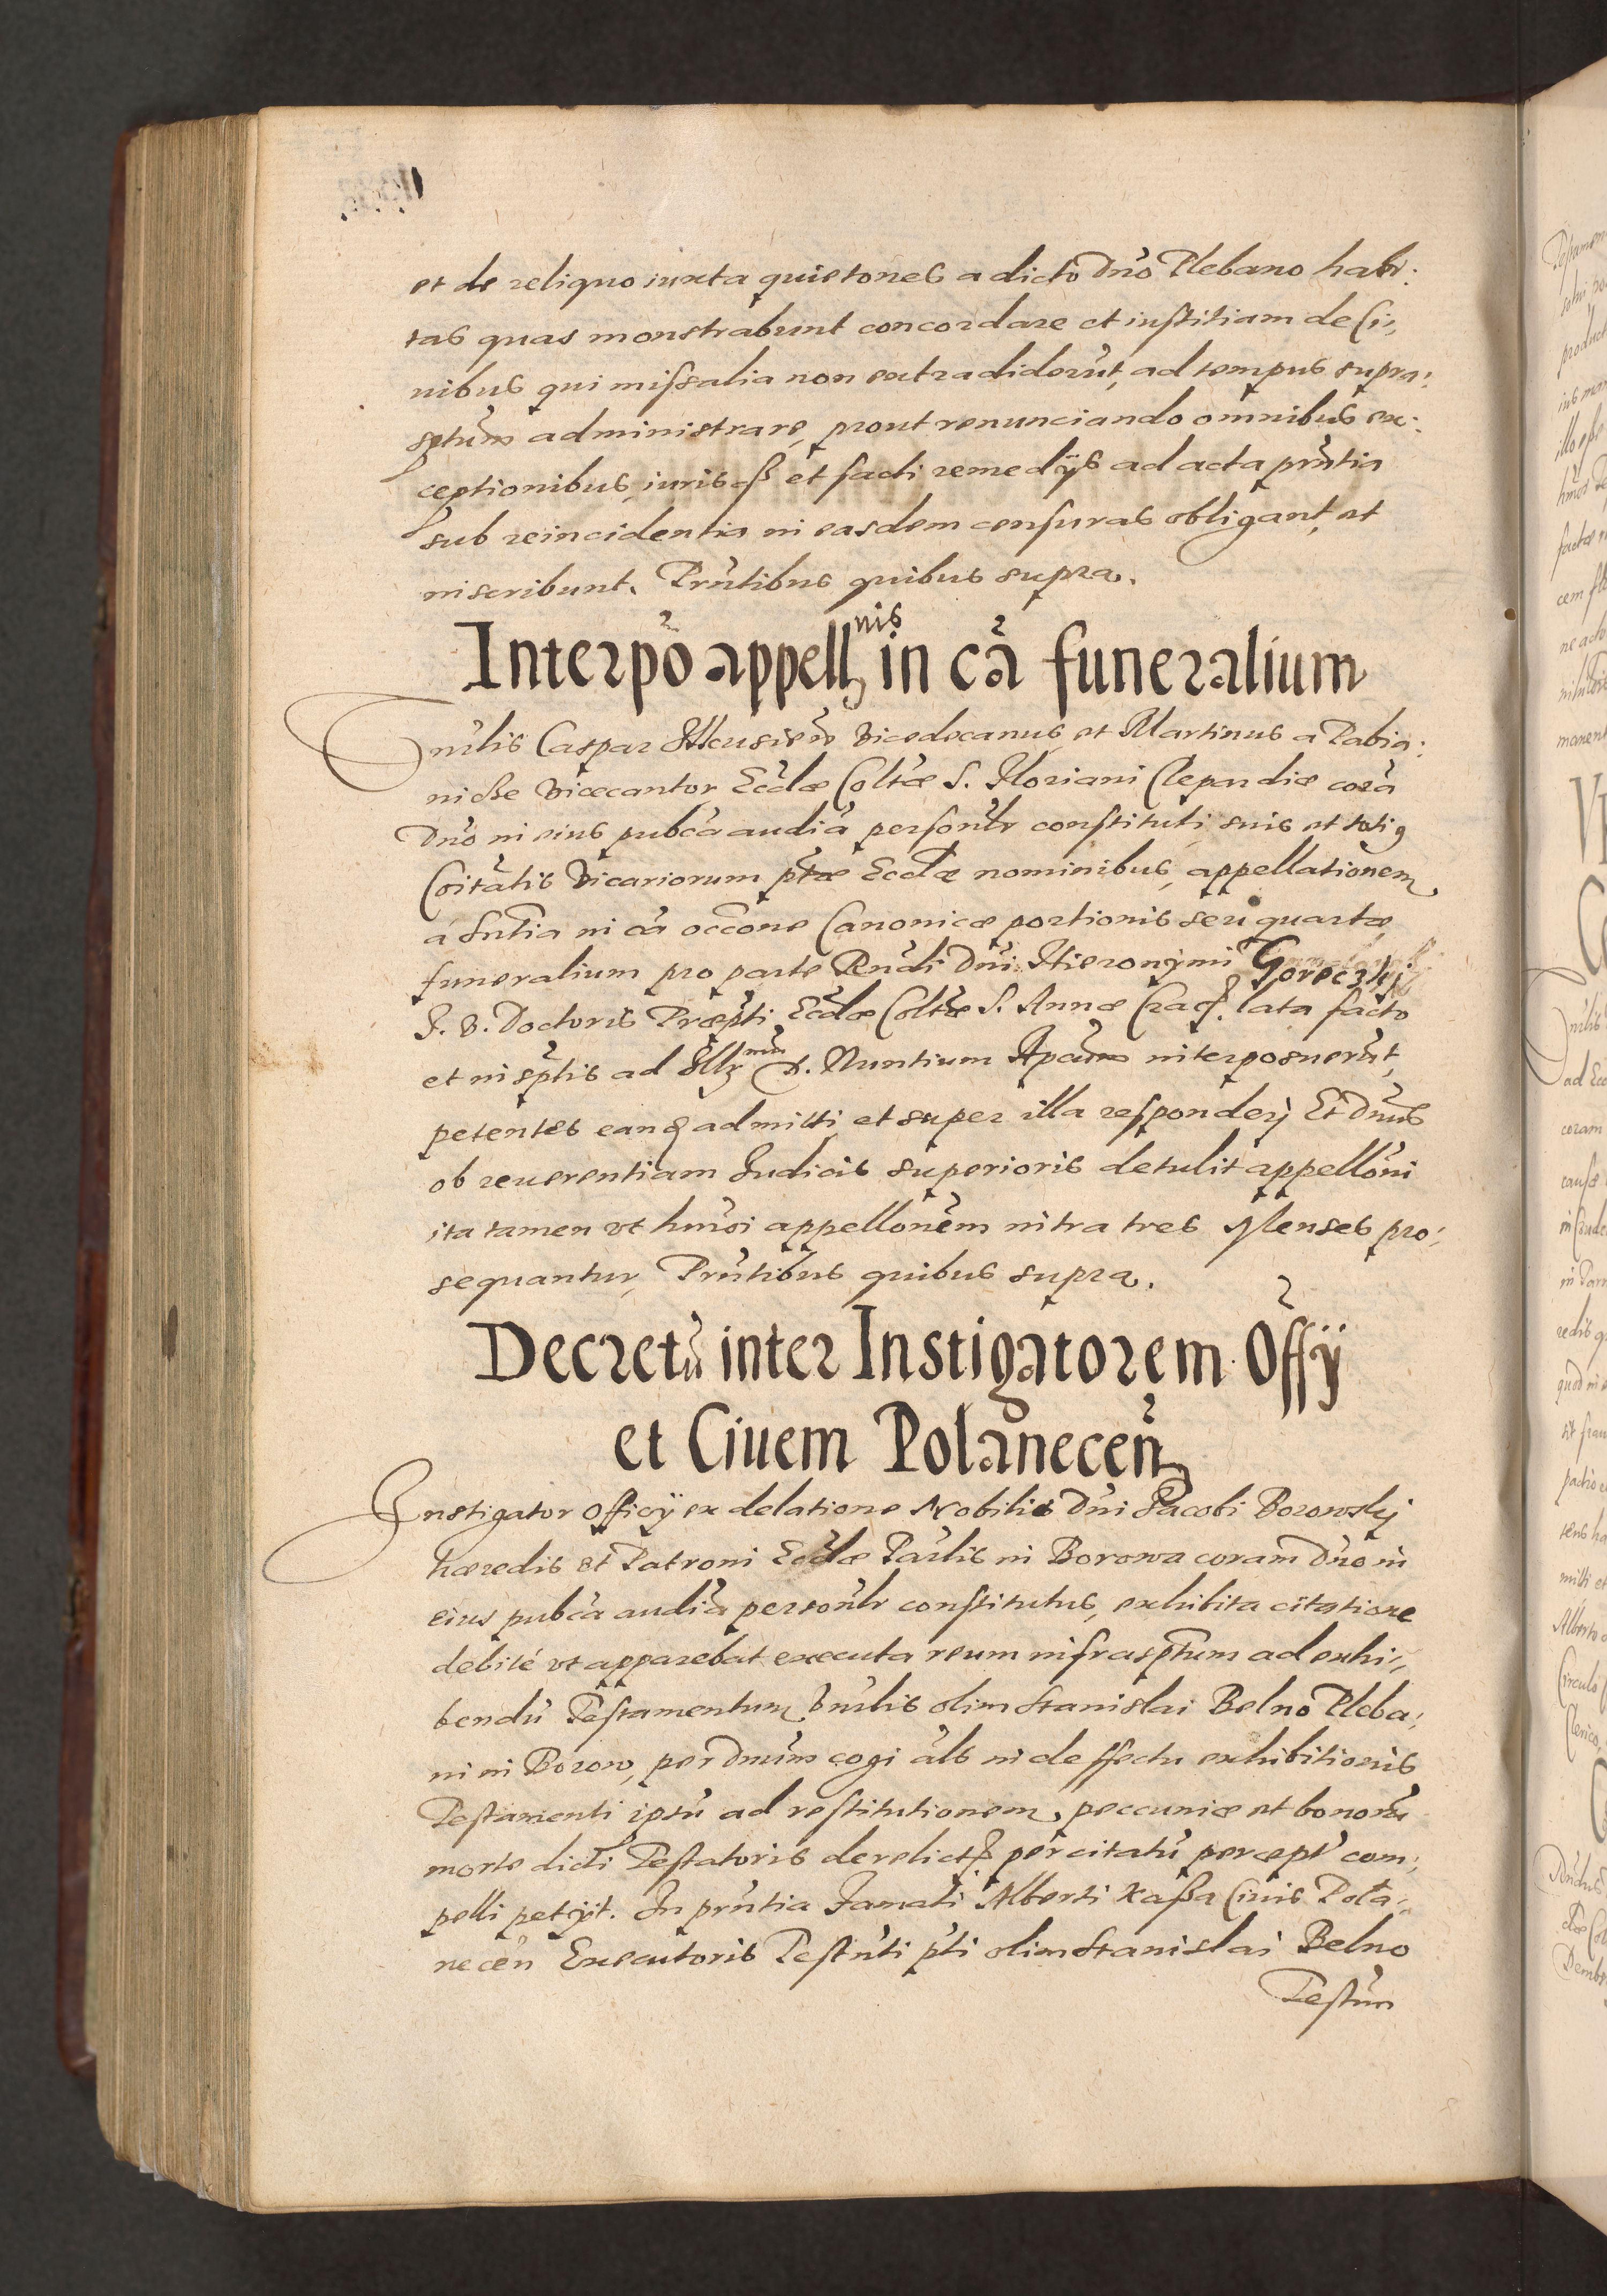 et de reliquo iuxta quietones a dicto Dno Plebano habi:
tas quas monstrabunt concordare et iustitiam de Ci:
uibus qui missalia non extradiderut, ad tempus supra:
sptum administrare, prout renunciando omnibus ex:
ceptionibus, iuris et facti remedÿs ad acta prntia
sub reincidentia in easdem censuras obligant, et
inscribunt. Prntibus quibus supra.
Interpo appellnis in ca funeralium
Caspar Ilkusien Vicedecanus et Martinus a Pabia:
nicze Vicecantor Eccl̃æ Coltæ S. Floriani Clepardiæ corã
Dno in eius pubca audia personlr constituti, suis et totius
Coitatis Vicariorum ptæ Ecclæ nominibus, appellationem
á sntia in cã occone Canonicæ portionis seu quartæ
funeralium pro parte Rendi Dni Hieronymi Goreczkj
J. V. Doctoris Præpti Ecclæ Coltæ S. Annæ Crac. lata facto
et in sptis ad Illrmum D. Nuntium Apcum interposuerut,
petentes eanq admitti et super illa responderj Et Dnus
ob reuerentiam Judicis superioris detulit appelloni
ita tamen vt hmoi appellonem intra tres Menses pro:
sequantur, Prntibus quibus supra.
Decretu inter Instigatorem Offÿ
et Ciuem Polanecen
Instigator Officÿ ex delatione Nobilis Dni Jacobi Borowskj
hæredis et Patroni Ecclæ Parlis in Borowa coram Dno in
eius pubca audia personlr constitutus, exhibita citatione
debité vt apparebat executa reum infrasptum ad exhi:
bendu Testamentum Vnrlis olim Stanislai Belno Pleba:
ni in Borow, per Dnum cogi als in deffectu exhibitionis
Testamenti ipsu ad restitutionem, peccuniæ et bonoru
morte dicti Testatoris derelict per citatu percept com:
pelli petÿt. In prntia Famati Alberti Kassa Ciuis Pola:
necen Executoris Testnti pti olim Stanislai Belno
Testum